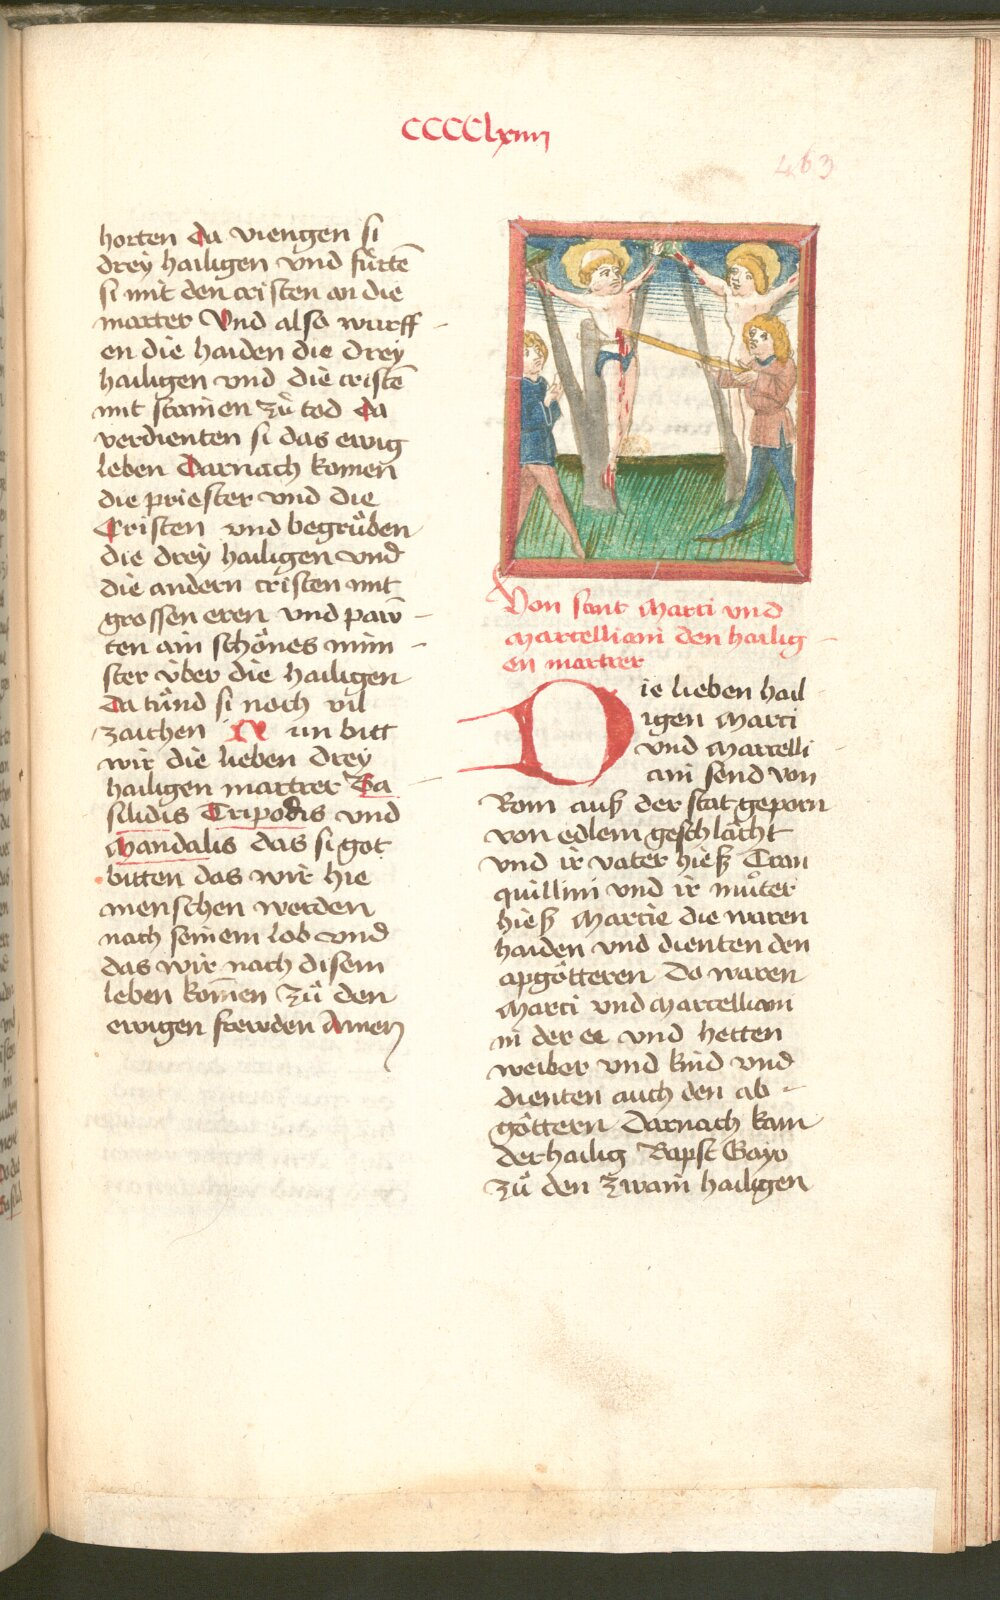 CCCClxiiij
463
horten da viengen si
drey hailigen vnd fürtē
si mit den cristen an die
marter Vnd also wurff-
en die haiden die drey
hailigen vnd die cristē
mit stainen zů tod da
verdienten si das ewig
leben Darnach komen
die priester vnd die
Cristen vnd begrůben
die drey hailigen vnd
die andern cristen mit
grossen eren vnd paw̄-
ten ain schönes mün-
ster über die hailigen
da tůnd si noch vil
zaichen Nun bitt
wir die lieben drey
hailigen martrer Ba-
silidis Tripodis vnd
Mandalis das si got
bitten das wir hie
menschen werden
nach seinem lob vnd
das wir nach disem
leben komen zů den
ewigen frewden Amen
Von sant Marci vnd
Marcelliani den hailig-
en martrer
Die lieben hail
igen Marci
vnd Marcelli
ani send von
Rom auß der stat geporn
von edlem geschlächt
vnd ir vater hieß Tran
quillini vnd ir můter
hieß Marcie die waren
haiden vnd dienten den
apgötteren Do waren
Marci vnd Marcelliani
in der ee vnd hetten
weiber vnd kind vnd
dienten auch den ab-
göttern Darnach kam
der hailig Bapst Gayo
zů den zwain hailigen